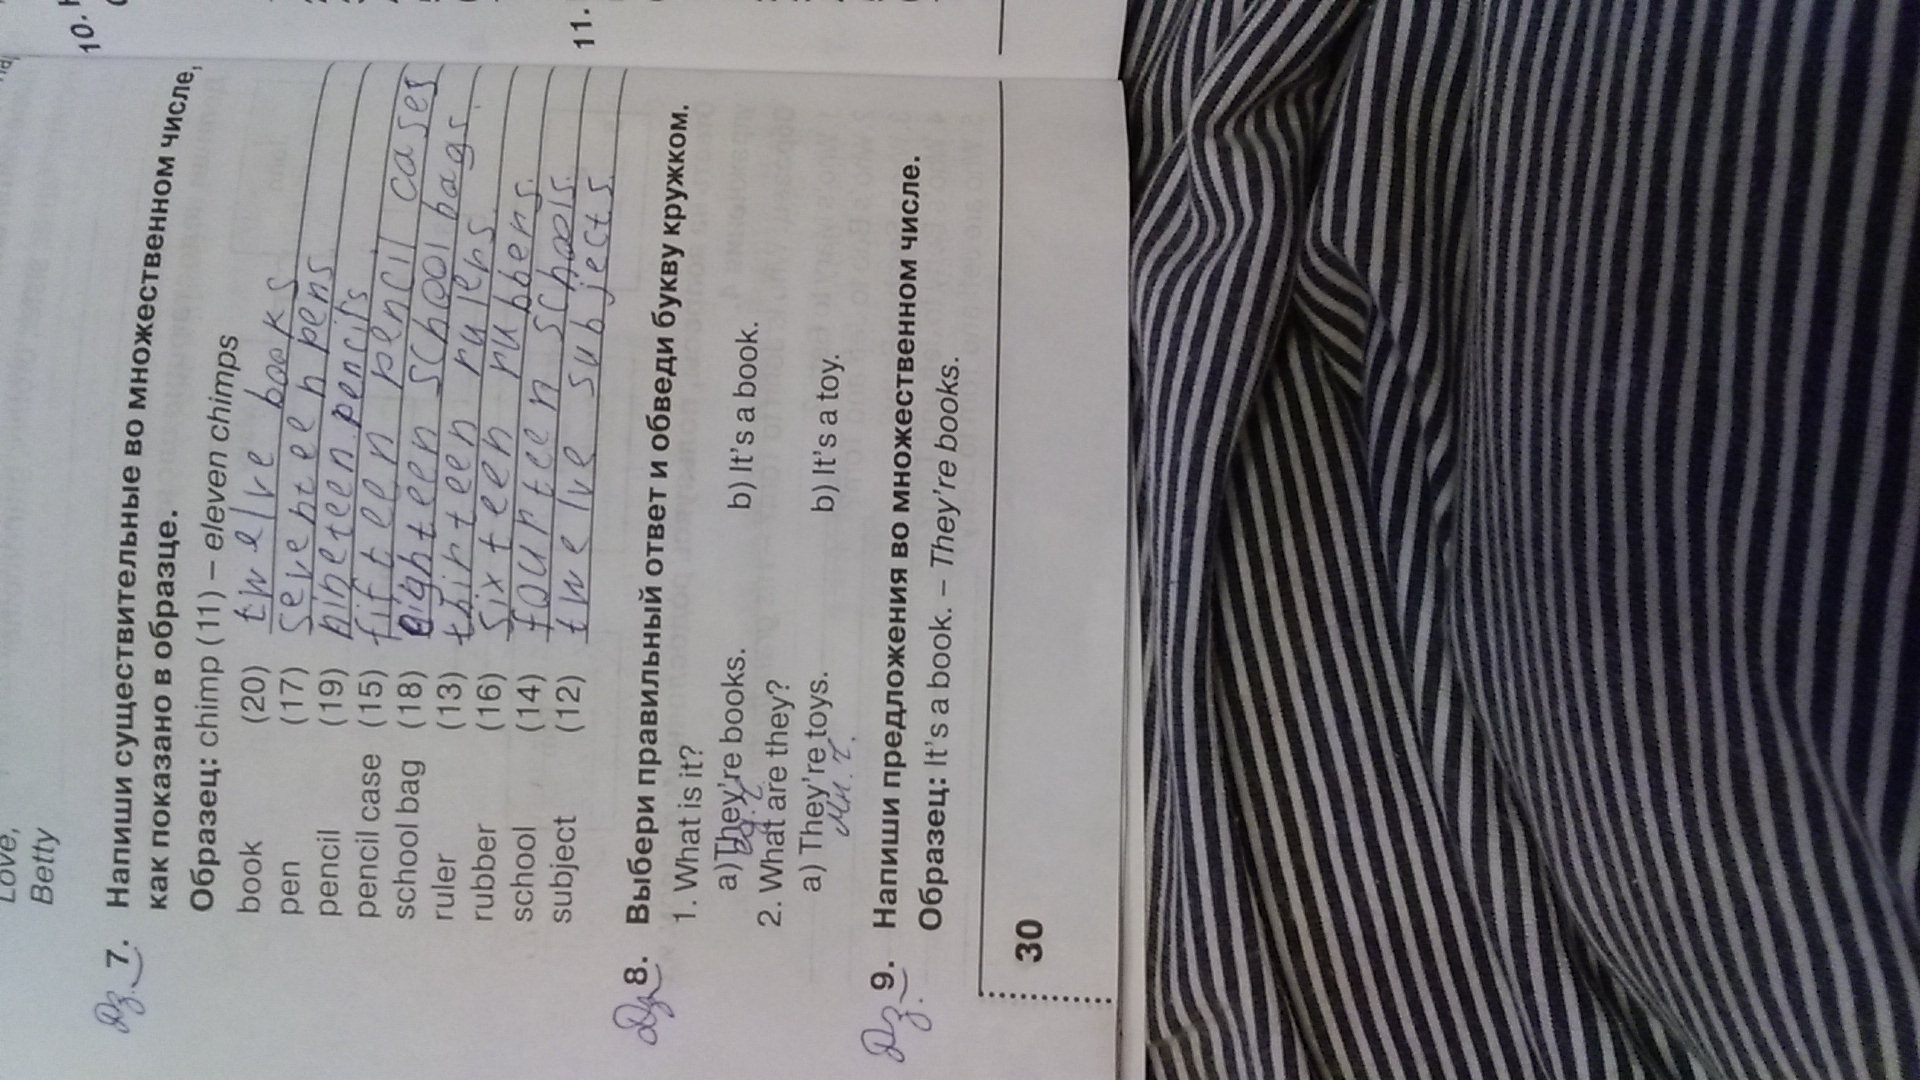 Love,
Betty
Дз. 7. Напиши существительные во множественном числе,
как показано в образце.
Образец: chimp (11) – eleven chimps
book (20) twelve books
pen (17) seventeen pens
pencil (19) nineteen pencils
pencil case (15) fifteen pencil cases
school bag (18) eighteen school bags.
ruler (13) thirteen rulers
rubber (16) sixteen rubbers.
school (14) fourteen schools.
subject (12) twelve subjects.
Дз 8. Выбери правильный ответ и обведи букву кружком.
1. What is it?
a) They're books. b) It's a book.
ед. ч
2. What are they?
a) They're toys. b) It's a toy.
мн. ч.
Дз. 9. Напиши предложения во множественном числе.
Образец: It's a book. – They're books.
30
10.
11.